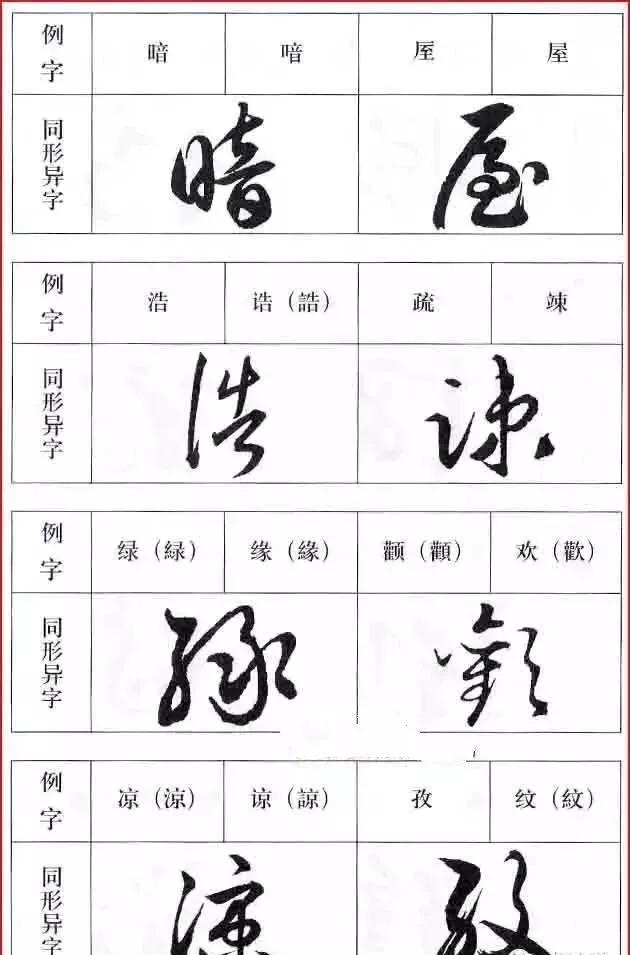 例字 暗 喑 厔 屋
同形异字
例字 浩 诰（誥） 疏 竦
同形异字
例字 绿（緑） 缘（緣） 颧（顴） 欢（歡）
同形异字
例字 凉（涼） 谅（諒） 孜 纹（紋）
同形异字